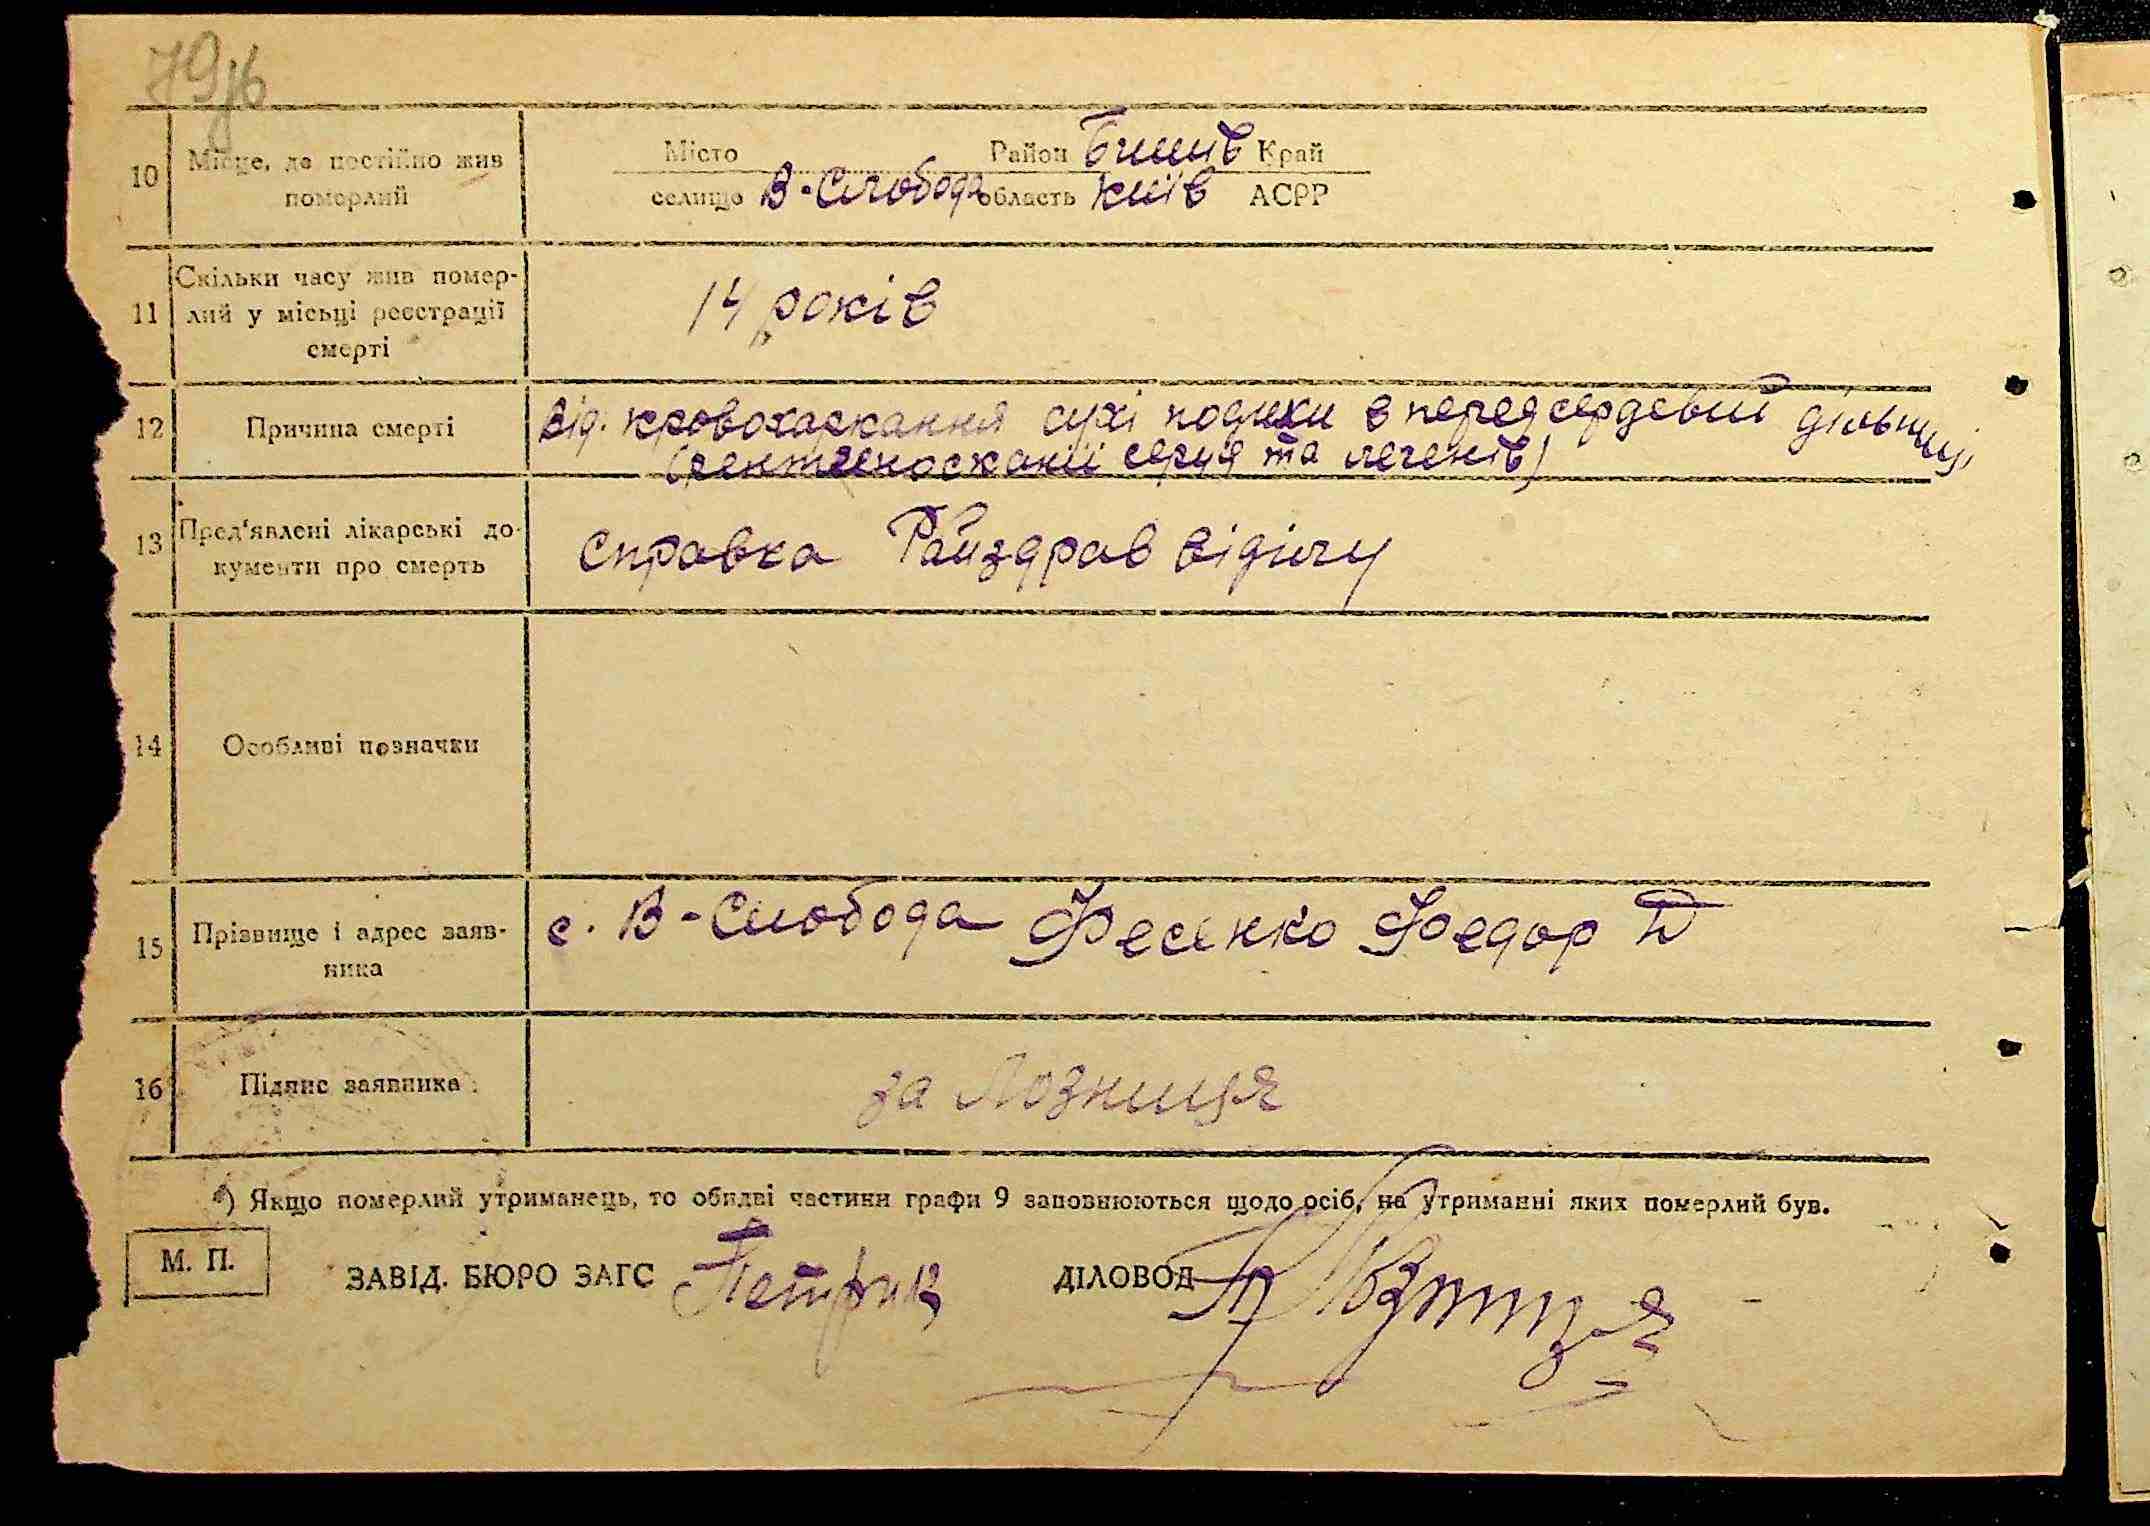 79зв
10 Місце, де постійно жив померлий
Місто Район Бишів Край
селище В-Слобода область Київ АСРР
11 Скільки часу жив помер-
лий у місьці реєстрації
смерті
14 років
12 Причина смерті
від. кровохаркання сухі подихи в передсердевий дільниці,
(рентгеноскопії серця та легенів)
13 Пред'явлені лікарські до-
кументи про смерть
справка Райздрав відділу
14 Особливі позначки
15 Прізвище і адрес заяв-
ника
с. В-Слобода Фесенко Федор Д
16 Підпис заявника
за Лозниця
*) Якщо померлий утриманець, то обидві частини графи 9 заповнюються щодо осіб, на утриманні яких померлий був.
М. П.
ЗАВІД. БЮРО ЗАГС Петрик ДІЛОВОД Лозниця